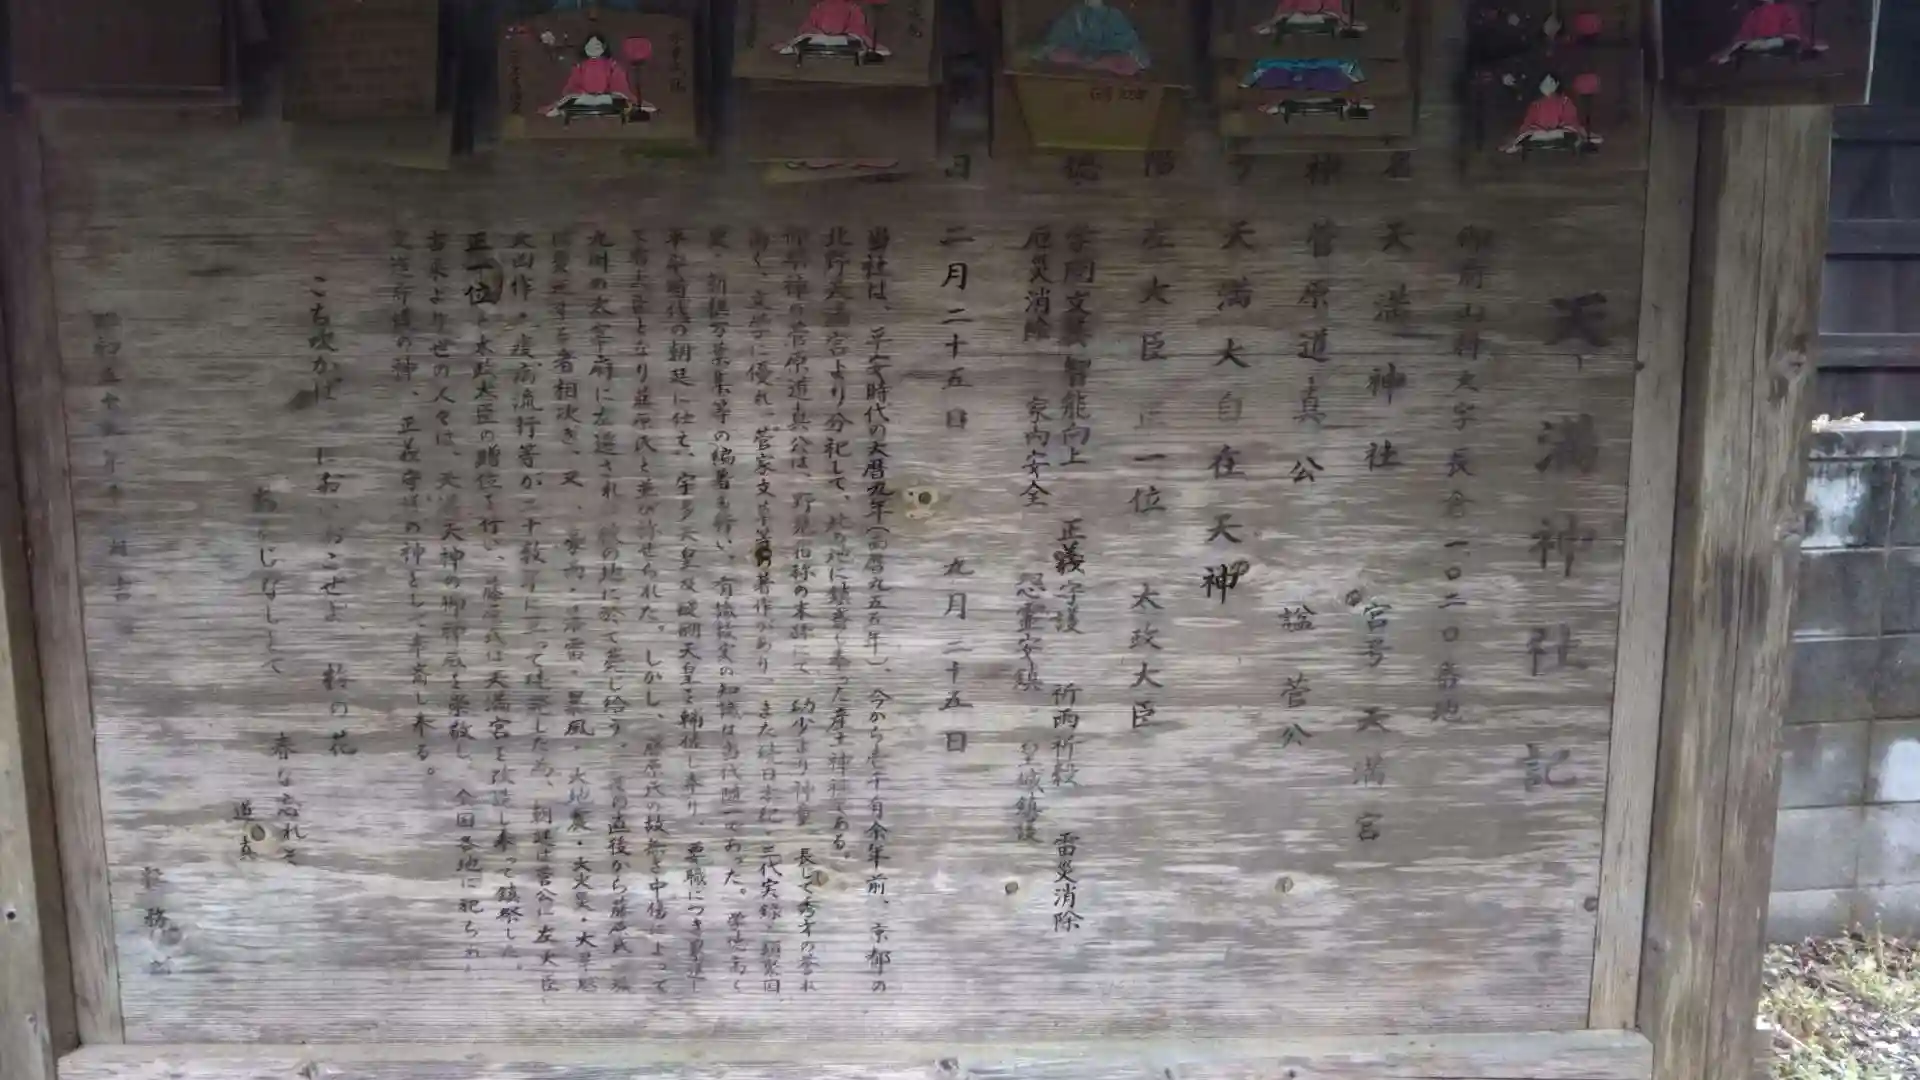 天満神社記
御所山村大字長谷一、〇二〇番地
名 天満神社 宮号 天満宮
神 菅原道真公 諡 菅公
天満大自在天神
左大臣正一位 太政大臣
徳 学問文藝智能向上 正義守護 祈雨祈穀 雷災消除
厄災消除 家内安全 怨霊安鎮 皇城鎮護
日 二月二十五日 九月二十五日
当社は、平安時代の天暦九年(西暦九五五年)、今から壱千有余年前、京都の
北野天満宮より分祀して、此の地に鎮斎し奉った産土神社である。
御祭神の菅原道真公は、野見宿祢の末裔にて 幼少より神童 長じて秀才の誉れ
高く、文学に優れ、菅家文草等の著作があり、また続日本紀・三代実録・類聚国
史・新撰万葉集等の編著も行い、有識故実の知識は当代随一であった。学徳高く
平安時代の朝廷に仕え、宇多天皇及醍醐天皇を輔佐し奉り、要職につき昇進し
て右大臣となり藤原氏と並び称せられた。しかし、藤原氏の故無き中傷によって
九州の太宰府に左遷され、彼の地に於て薨し給う。薨去直後から藤原氏一族
に変死する者相次ぎ、又、豪雨・落雷・暴風・大地震・大火災・大旱魃
大凶作・疫病流行等が二十数年に亘って続発した為、朝廷は菅公に左大臣、
正一位と太政大臣の贈位を行い、藤原氏は天満宮を改造し奉って鎮祭した。
古来より世の人々は、天満天神の御神威を崇敬し、全国各地に祀られ、
文学の神、正義守護の神として奉斎し来る。
こち吹かば においおこせよ 梅の花
あるじなしとて 春な忘れそ
道真
昭和五十
社務所